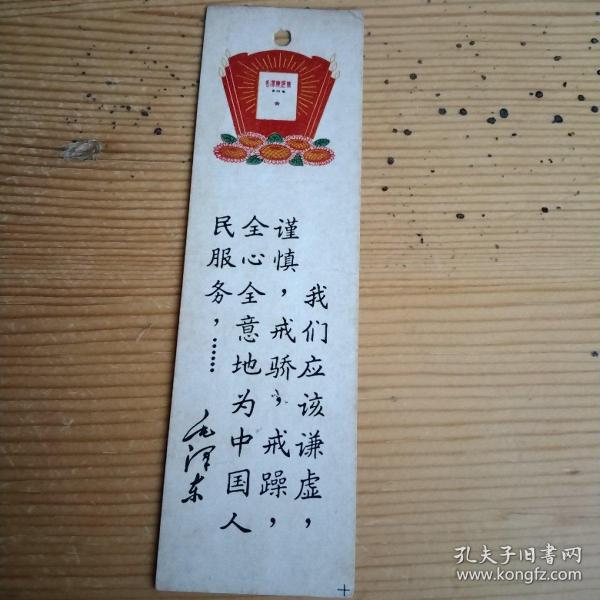 毛泽东选集
我们应该谦虚，
谨慎，戒骄，戒躁，
全心全意地为中国人
民服务，……
毛泽东
孔夫子旧书网
www.kongfz.com